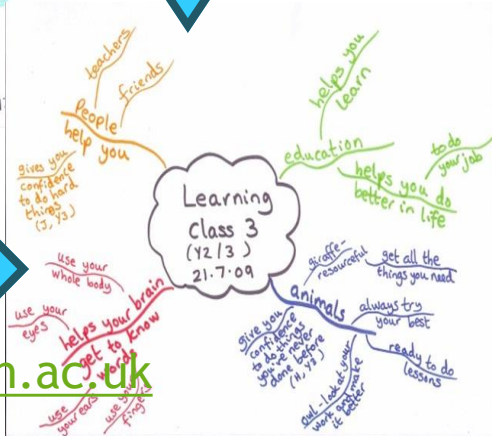 Learning
Class 3
(Y2/3)
21.7.09
People
help you
teachers
friends
gives you
confidence
to do hard
things
(J, Y3)
education
helps you
learn
helps you do
better in life
to do
your job
animals
giraffe-
resourceful
get all the
things you need
always try
your best
ready to do
lessons
owl-look at your
work and make
it better
give you
confidence
to do things
you've never
done before
(H, Y3)
helps your brain
get to know
words
use your
whole body
use your
eyes
use
your ears
use your
fingers
n.ac.uk